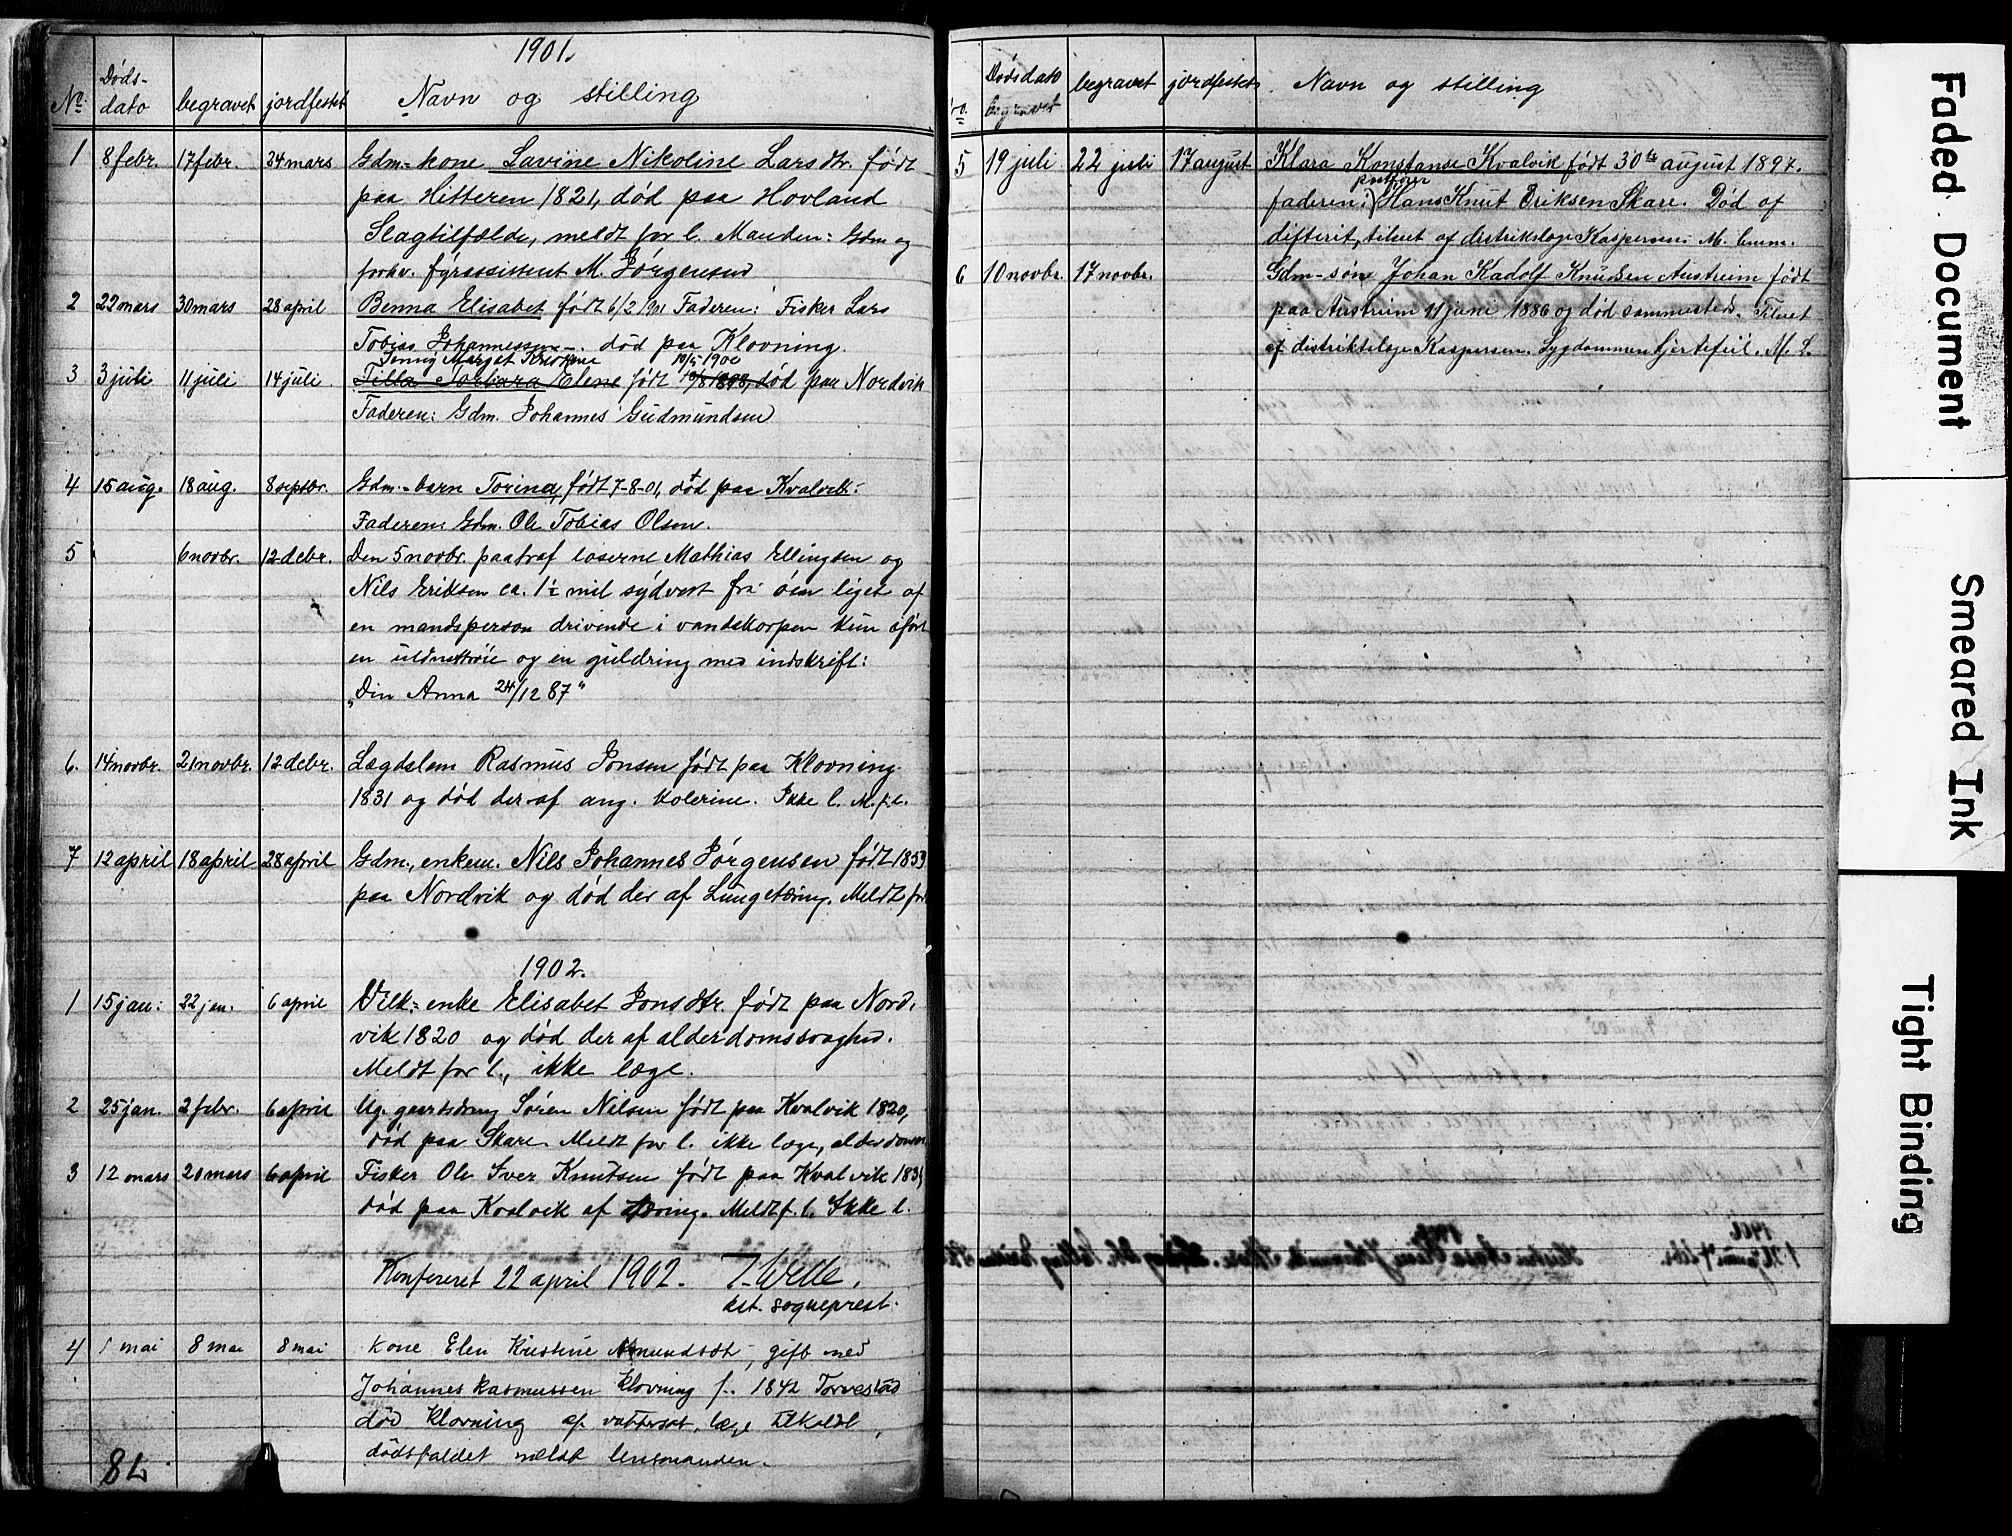 1901.
No. Døds-dato begravet jordfestet Navn og stilling
1 8 febr. 17 febr. 24 mars Gdm-kone Lavine Nikoline Larsdtr. født
paa Hitteren 1821, død paa Hovland
Slagtilfælde, meldt for l. Manden: Gdm og
forhv. fyrassistent M. Jørgensen
2 22 mars 30 mars 28 april Benna Elisabet født 6/2 1901 Faderen: Fisker Lars
Tobias Johannessen. død paa Klovning.
Jenny Marget 10/5 1900
3 3 juli 11 juli 14 juli Tilla Barbara Elene født 1898, død paa Nordvik
Faderen: Gdm. Johannes Gudmundsen
4 15 aug. 18 aug. 8 septbr. Gdm.-barn Torina, født 7-8-01, død paa Kvalvik:
Faderen: Gdm. Ole Tobias Olsen.
5 6 novbr. 12 debr. Den 5 novbr. paatraf loserne Mathias Ellingsen og
Nils Eriksen ca. 1½ mil sydvest fra øen liget af
en mandsperson drivende i vandskorpen kun iført
en uldnettrøie og en guldring med indskrift:
„Din Anna 24/12 87"
6. 14 novbr. 21 novbr. 12 debr. Lægdslem Rasmus Jonsen født paa Klovning
1831 og død der af ang. kolerine. Ikke l. M.f.l.
7 12 april 18 april 28 april Gdm., enkem. Nils Johannes Jørgensen født 1853
paa Nordvik og død der af Lungetæring. Meldt for
1902.
1 15 jan: 22 jan. 6 april Vilk.-enke Elisabet Jonsdtr. født paa Nord-
vik 1820 og død der af alderdomssvaghed.
Meldt for l., ikke læge.
2 25 jan. 2 febr. 6 april Ug. gaardsdreng Søren Nilsen født paa Kvalvik 1820,
død paa Skare. Meldt for l. ikke læge, alderdom
3 12 mars 20 mars 6 april Fisker Ole Iver Knutsen født paa Kvalvik 1831
død paa Kvalvik af tæring. Meldt f. l. Ikke l.
Konfereret 22 april 1902.
kst. sogneprest.
4 1 mai 8 mai 8 mai Kone Elen Kristine Amundsdt, gift med
Johannes Rasmussen Klovning f. 1842 Torvestad
død Klovning af vattersot, læge tilkaldt,
dødsfaldet meldt lensmanden.
82
No. Dødsdato begravet begravet jordfestet. Navn og stilling
5 19 juli 22 juli 17 august Klara Konstanse Kvalvik født 30te august 1897.
faderen: Hans Knut Eriksen Skare. Død af
difterit, tilset af distriktslæge Kaspersen. M.
6 10 novbr. 17 novbr. Gdm-søn Johan Kadolf Knudsen Austreim født
paa Austreim 11 juni 1886 og død sammesteds. Tilset
af distriktslæge Kaspersen. Sygdommen hjertefeil. M. L.
Faded Document
Smeared Ink
Tight Binding